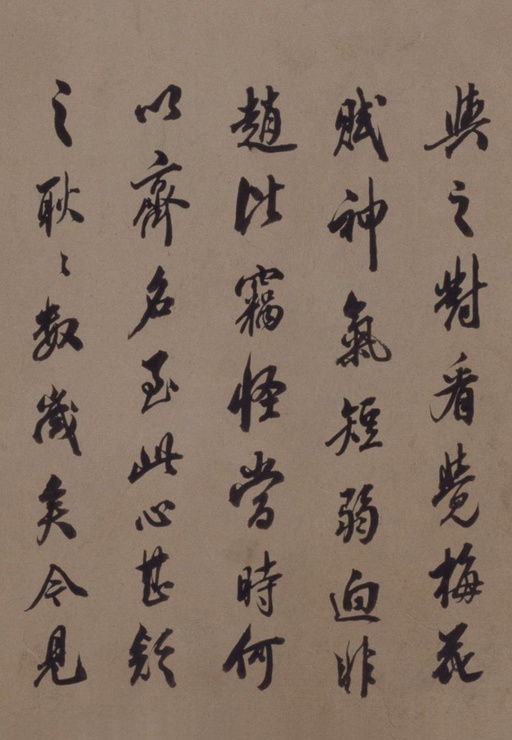 與之對看覺梅花
賦神氣短弱逈非
趙比竊怪當時何
以齊名至此心甚疑
之耿〻数歲矣今見